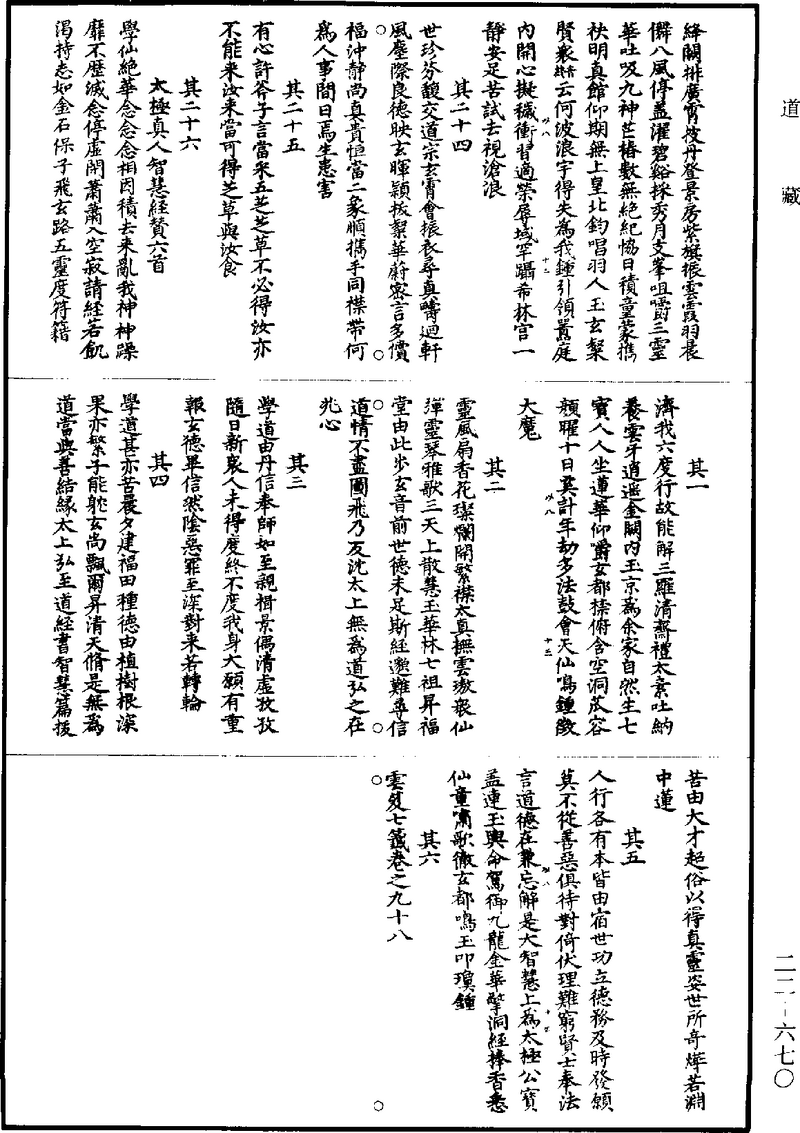 道藏
絳闕排廣霄披丹登景房紫旗振雲霞羽晨
儛八風停蓋濯碧谿採秀月支峯咀嚼三靈
華吐吸九神芒椿數無絕紀協日積童蒙攜
袂明真館仰期無上皇北鈞唱羽人玉玄粲
賢衆云何波浪宇得失為我鍾引領囂庭
內開心擬穢衝習適榮辱域罕躡希林宮一
靜安足苦試去視滄浪
其二十四
世珍芬馥交道宗玄霄會振衣尋真疇迴軒
風塵際良德映玄暉穎拔絜華蔚密言多償
福沖靜尚真貴恒當二象順攜手同襟帶何
為人事間日焉生患害
其二十五
有心許谷子言當采五芝芝草不必得汝亦
不能来汝来當可得芝草與汝食
其二十六
太極真人智慧經贊六首
學仙絕華念念念相因積去来亂我神神躁
靡不歷滅念停虛閑蕭蕭入空寂請經若飢
渴持志如金石保子飛玄路五靈度符籍
其一
濟我六度行故能解三羅清齋禮太素吐納
養雲牙逍遥金闕內玉京為余家自然生七
寶人人坐蓮華仰嚼玄都㮈俯含空洞瓜容
顏曜十日奚計年劫多法鼓會天仙鳴鍾徵
大魔
其二
靈風扇香花璨爛開繁襟太真撫雲璈衆仙
彈靈琴雅歌三天上散慧玉華林七祖昇福
堂由此步玄音前世德未足斯經邈難尋信
道情不盡圖飛乃反沈太上無為道弘之在
兆心
其三
學道由丹信奉師如至親揖景偶清虛孜孜
隨日新衆人未得度終不度我身大願有重
報玄德畢信然陰惡罪至深對来若轉輪
其四
學道甚亦苦晨夕建福田種德由植樹根深
果亦繁子能躭玄尚飄爾昇清天脩是無為
道當與善結緣太上弘至道經書智慧篇拔
苦由大才超俗以得真靈姿世所奇燁若淵
中蓮
其五
人行各有本皆由宿世功立德務及時發願
莫不從善惡俱待對倚伏理難窮賢士奉法
言道德在兼忘解是大智慧上為太極公寶
盖連玉輿命駕御九龍金華擎洞經捧香悉
仙童嘯歌徹玄都鳴玉叩瓊鍾
其六
雲笈七籤卷之九十八
二二－六七〇